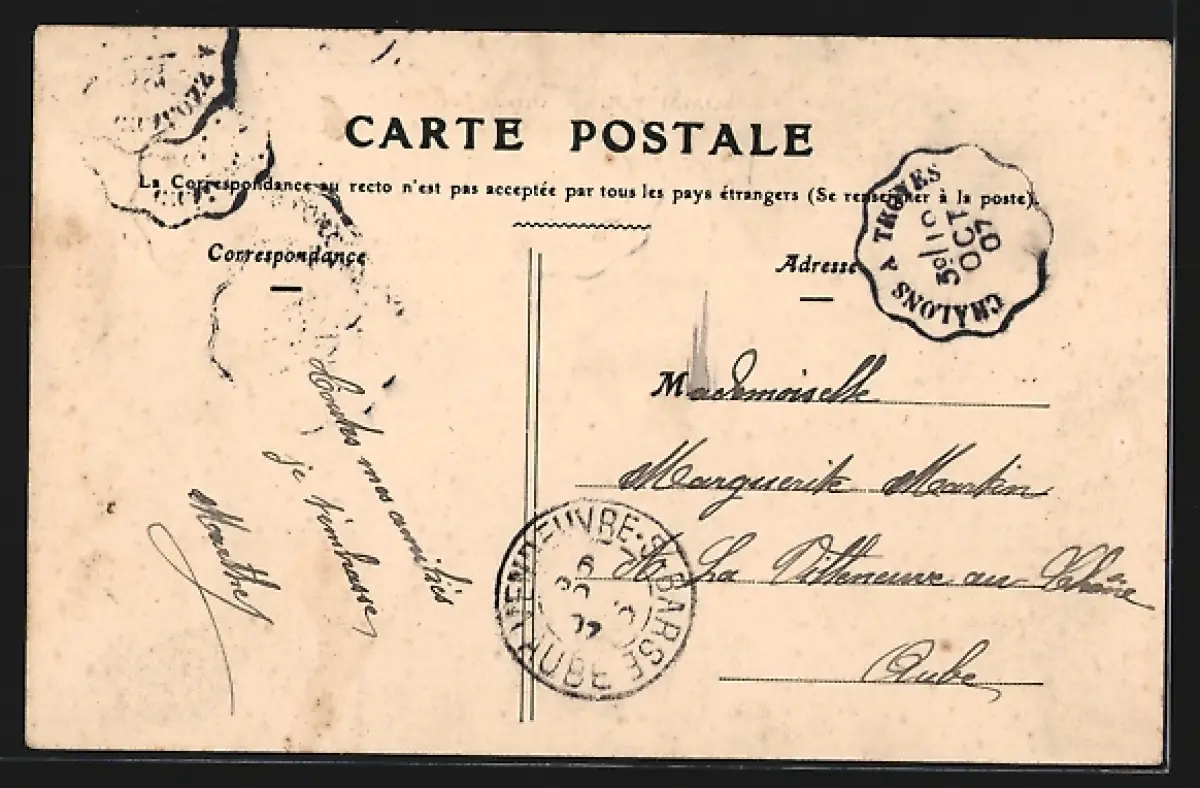 CARTE POSTALE
La Correspondance au recto n'est pas acceptée par tous les pays étrangers (Se renseigner à la poste).
Correspondance
Adresse
CHALONS A TROYES
3°/10
OCT
07
Mademoiselle
Marguerite Martin
La Villeneuve au
Aube
mes amitiés
je t'embrasse
VENDEUVRE-S-BARSE
AUBE